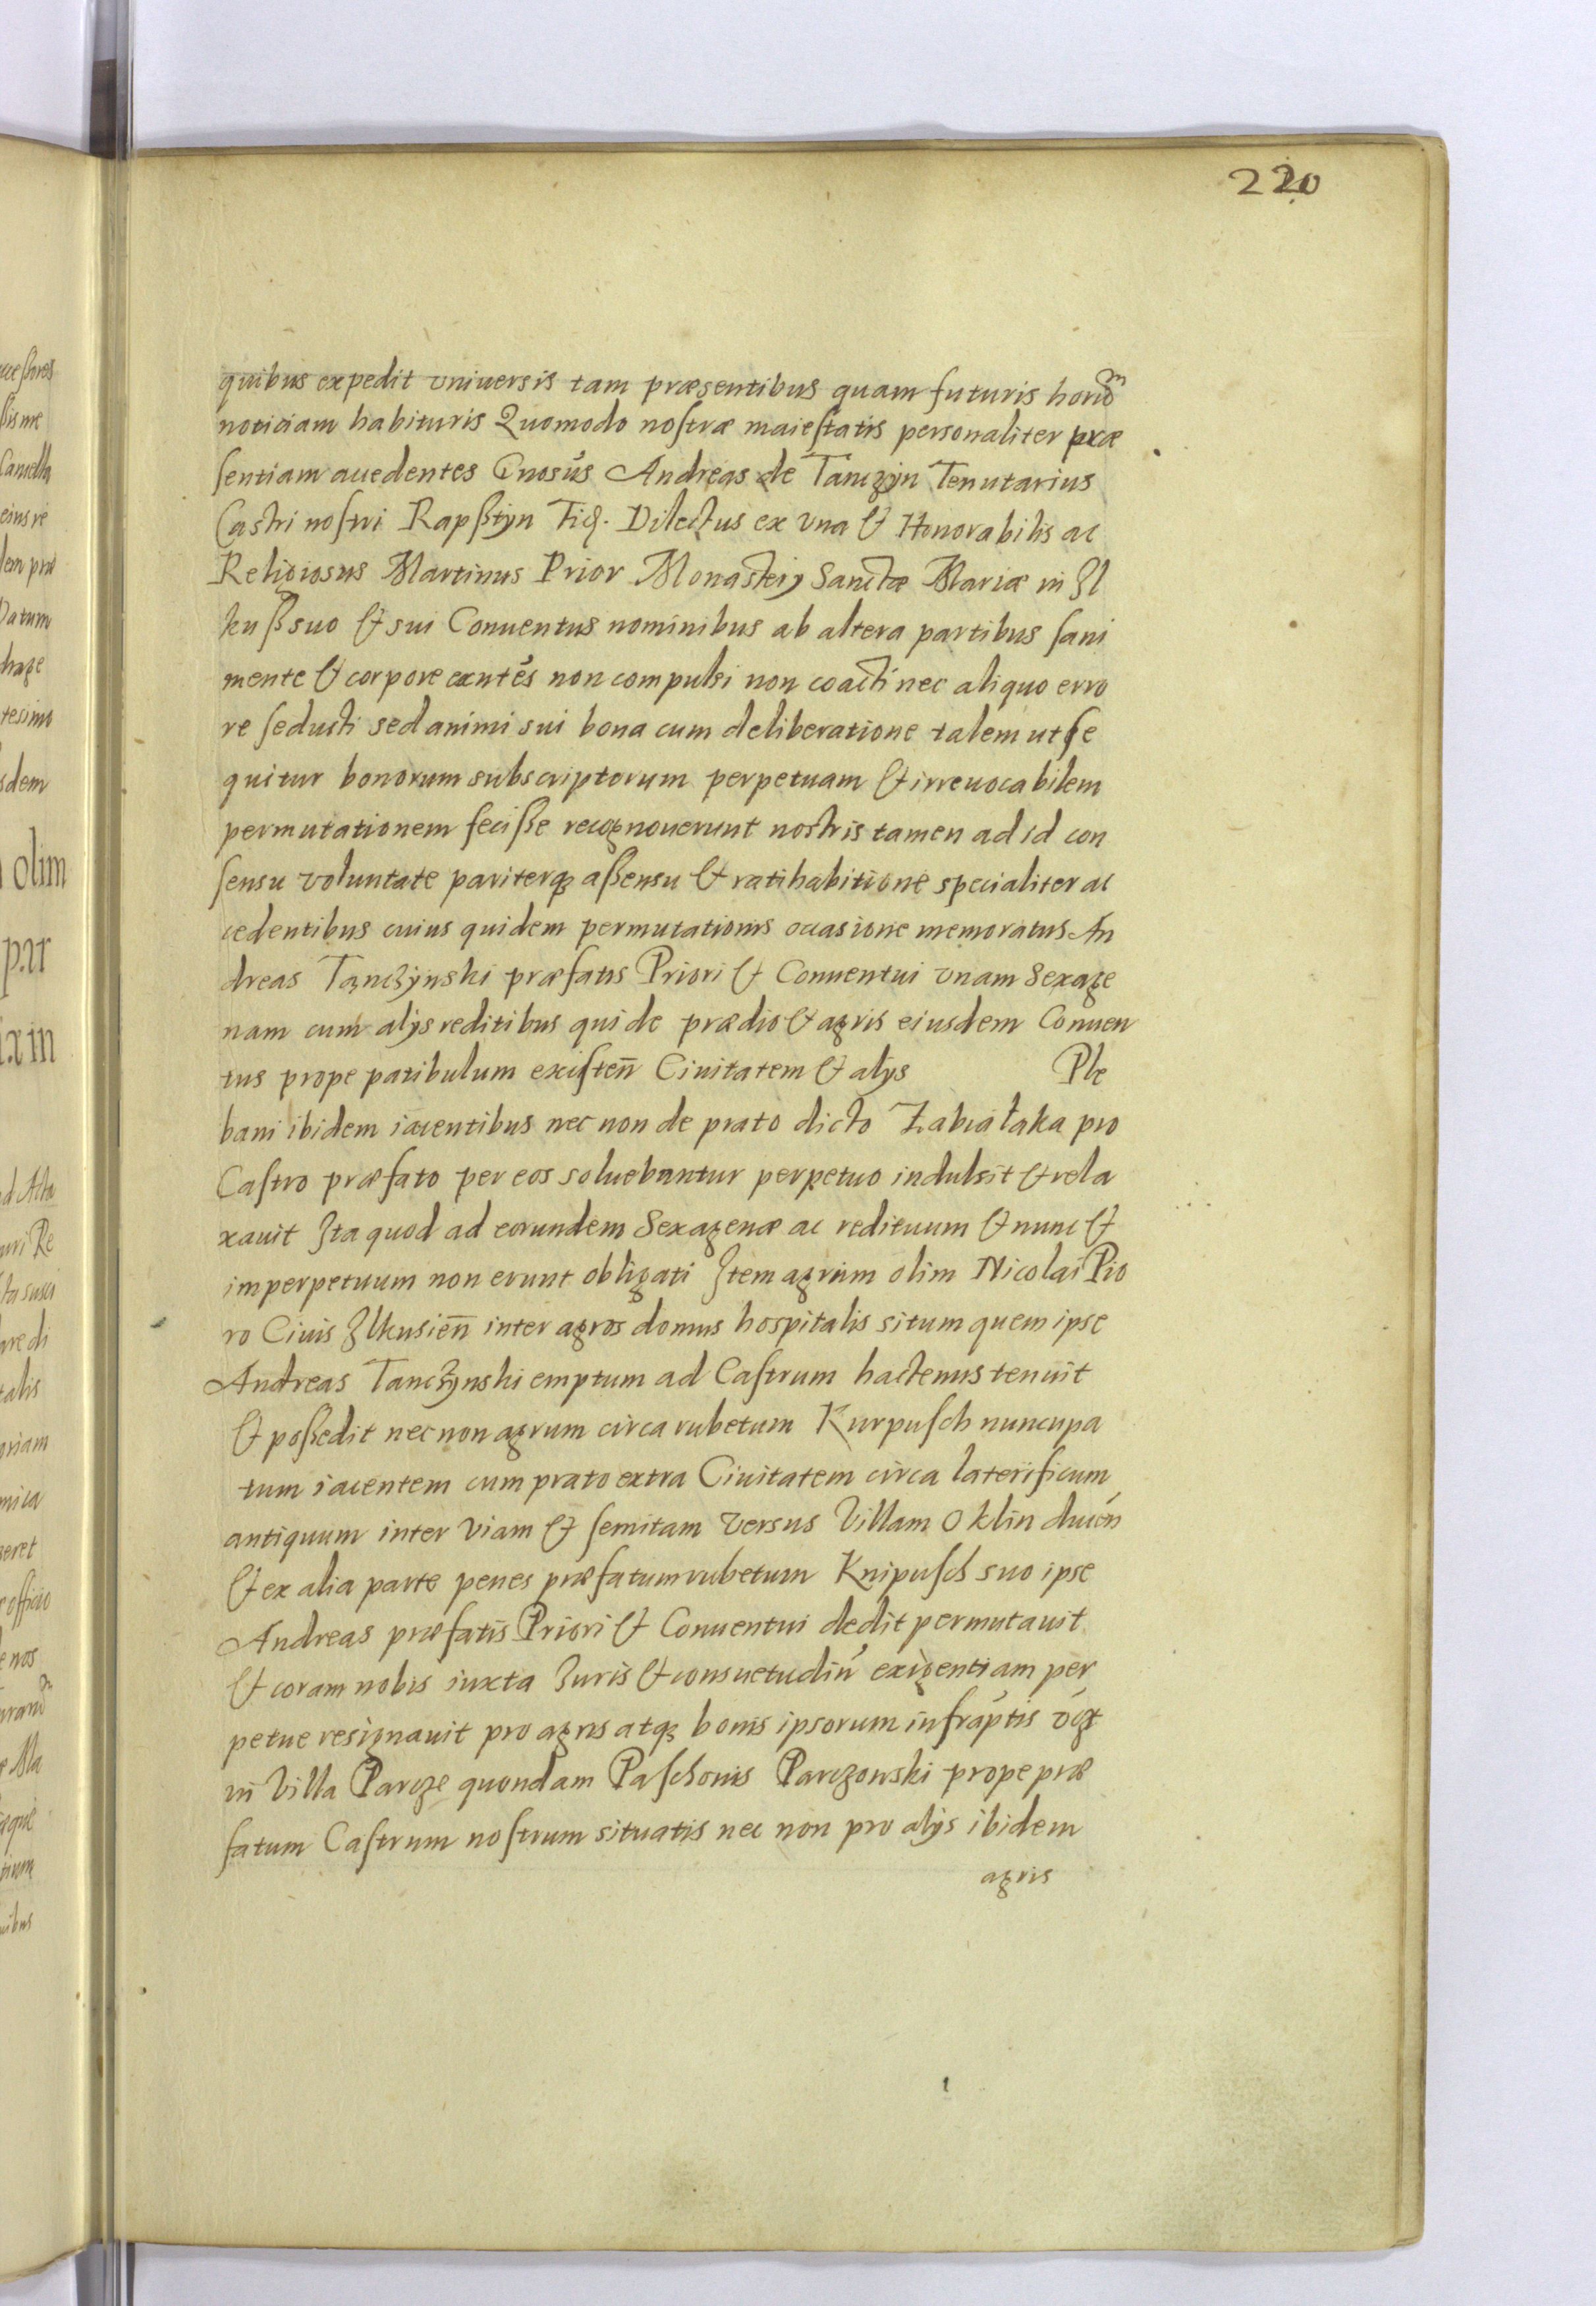 220
quibus expedit vniuersis tam præsentibus quam futuris horū
noticiam habituris Quomodo nostræ maiestatis personaliter præ
sentiam accedentes Gnosus Andreas de Tanczyn Tenutarius
Castri nostri Rapßtyn Fid. Dilectus ex vna & Honorabilis ac
Religiosus Martinus Prior Monasterij Sanctæ Mariæ in Jl
kuß suo & sui Conuentus nominibus ab altera partibus sani
mente & corpore exntes non compulsi non coacti nec aliquo erro
re seducti sed animi sui bona cum deliberatione talem ut se
quitur bonorum subscriptorum perpetuam & irreuocabilem
permutationem fecisse recognouerunt nostris tamen ad id con
sensu voluntate pariterq₃ assensu & ratihabitione specialiter ac
cedentibus cuius quidem permutationis occasione memoratus An
dreas Tanczynski præfatis Priori & Conuentui vnam Sexage
nam cum alys reditibus qui de prædio & agris eiusdem Conuen
tus prope patibulum existen̄ Ciuitatem & alys Ple
bani ibidem iacentibus nec non de prato dicto Zabia łaka pro
Castro præfato per eos soluebantur perpetuo indulsit & rela
xauit Jta quod ad eorundem Sexagenæ ac redituum & nunc &
imperpetuum non erunt obligati Jtem agrum olim Nicolai Pio
ro Ciuis Jlkusien̄ inter agros domus hospitalis situm quem ipse
Andreas Tanczynski emptum ad Castrum hactenus tenuit
& possedit nec non agrum circa rubetum Kurpusch nuncupa
tum iacentem cum prato extra Ciuitatem circa laterificum
antiquum inter Viam & semitam versus Villam Oklin ducen
& ex alia parte penes præfatum rubetum Knipusch suo ipse
Andreas præfatis Priori & Conuentui dedit permutauit
& coram nobis iuxta Juris & consuetudin exigentiam per
petue resignauit pro agris atq₃ bonis ipsorum infraptis vzt
in Villa Parcze quondam Paschonis Parczowski prope præ
fatum Castrum nostrum situatis nec non pro alys ibidem
agris